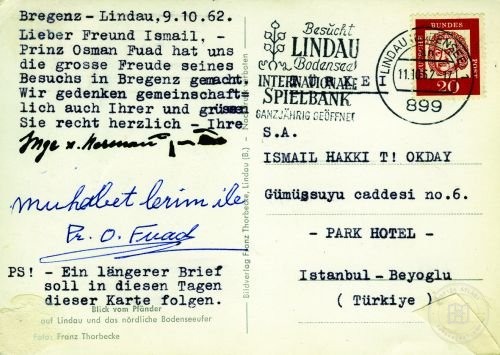 Bregenz - Lindau, 9.10.62.
Lieber Freund Ismail, -
Prinz Osman Fuad hat uns
die grosse Freude seines
Besuchs in Bregenz gemacht.
Wir gedenken gemeinschaft-
lich auch Ihrer und grüssen
Sie recht herzlich - Ihre
Inge u. Herman
muhabetlerim ile
Pr. O. Fuad
PS! - Ein längerer Brief
soll in diesen Tagen
dieser Karte folgen.
Blick vom Pfänder
auf Lindau und das nördliche Bodenseeufer
Foto: Franz Thorbecke
Bildverlag Franz Thorbecke, Lindau (B.) - Nachdruck verboten
Besucht
LINDAU
Bodensee
INTERNATIONALE
SPIELBANK
GANZJÄHRIG GEÖFFNET
LINDAU
11.10.62
899
BUNDES
POST
20
S.A.
ISMAIL HAKKI T! OKDAY
Gümüssuyu caddesi no.6.
- PARK HOTEL -
Istanbul-Beyoglu
( Türkiye )